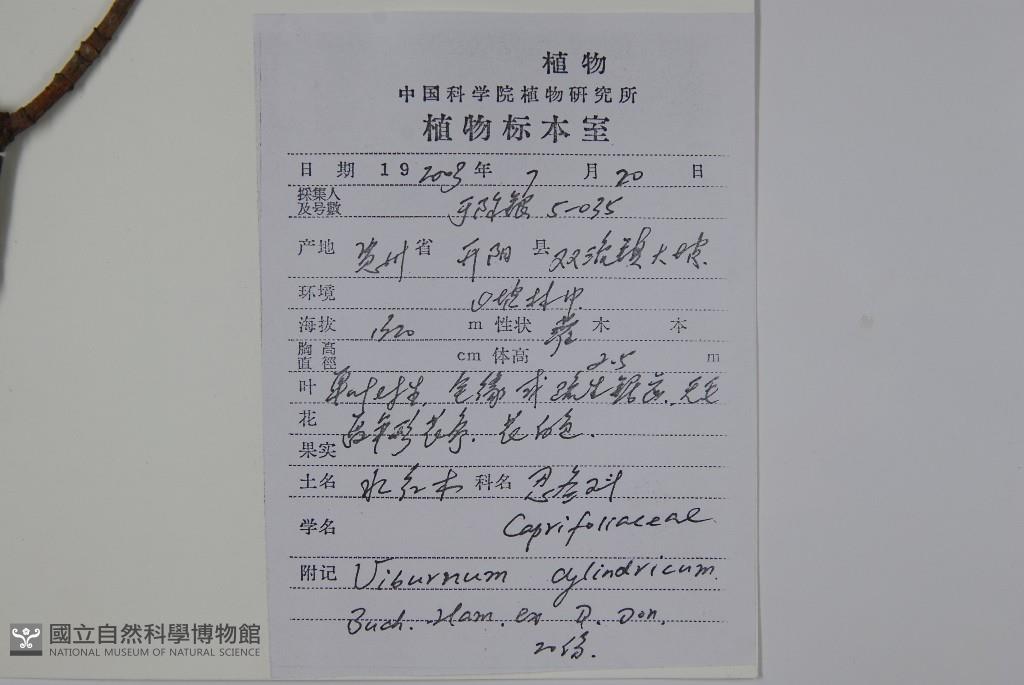 植物
中国科学院植物研究所
植物标本室
日 期 19 2003 年 7 月 20 日
採集人
及号數 5-035
产地 贵州 省 开阳 县 双流镇大坡
环境 山坡林中
海拔 1320 m 性状 灌 木 本
胸高
直徑 cm 体高 2.5 m
叶 单叶对生, 全缘或疏生锯齿, 无毛
花 花序. 花白色.
果实
土名 水红木 科名 忍冬科
学名 Caprifoliaceae
附记 Viburnum cylindricum
Buch. Ham. ex D. Don.
20份.
國立自然科學博物館
NATIONAL MUSEUM OF NATURAL SCIENCE